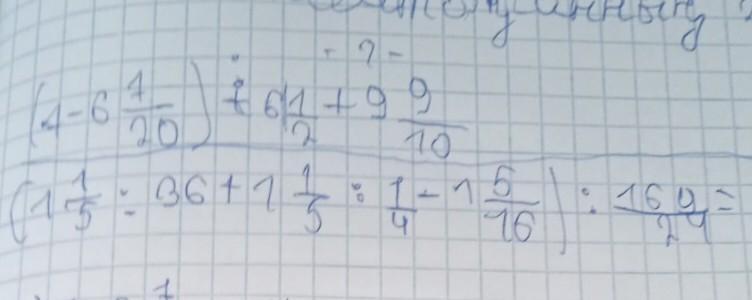 - ? -
(1 - 6 1/20) : 6 1/2 + 9 9/10
(1 1/5 : 36 + 1 1/5 : 1/4 - 1 5/16) : 169/24 =
1